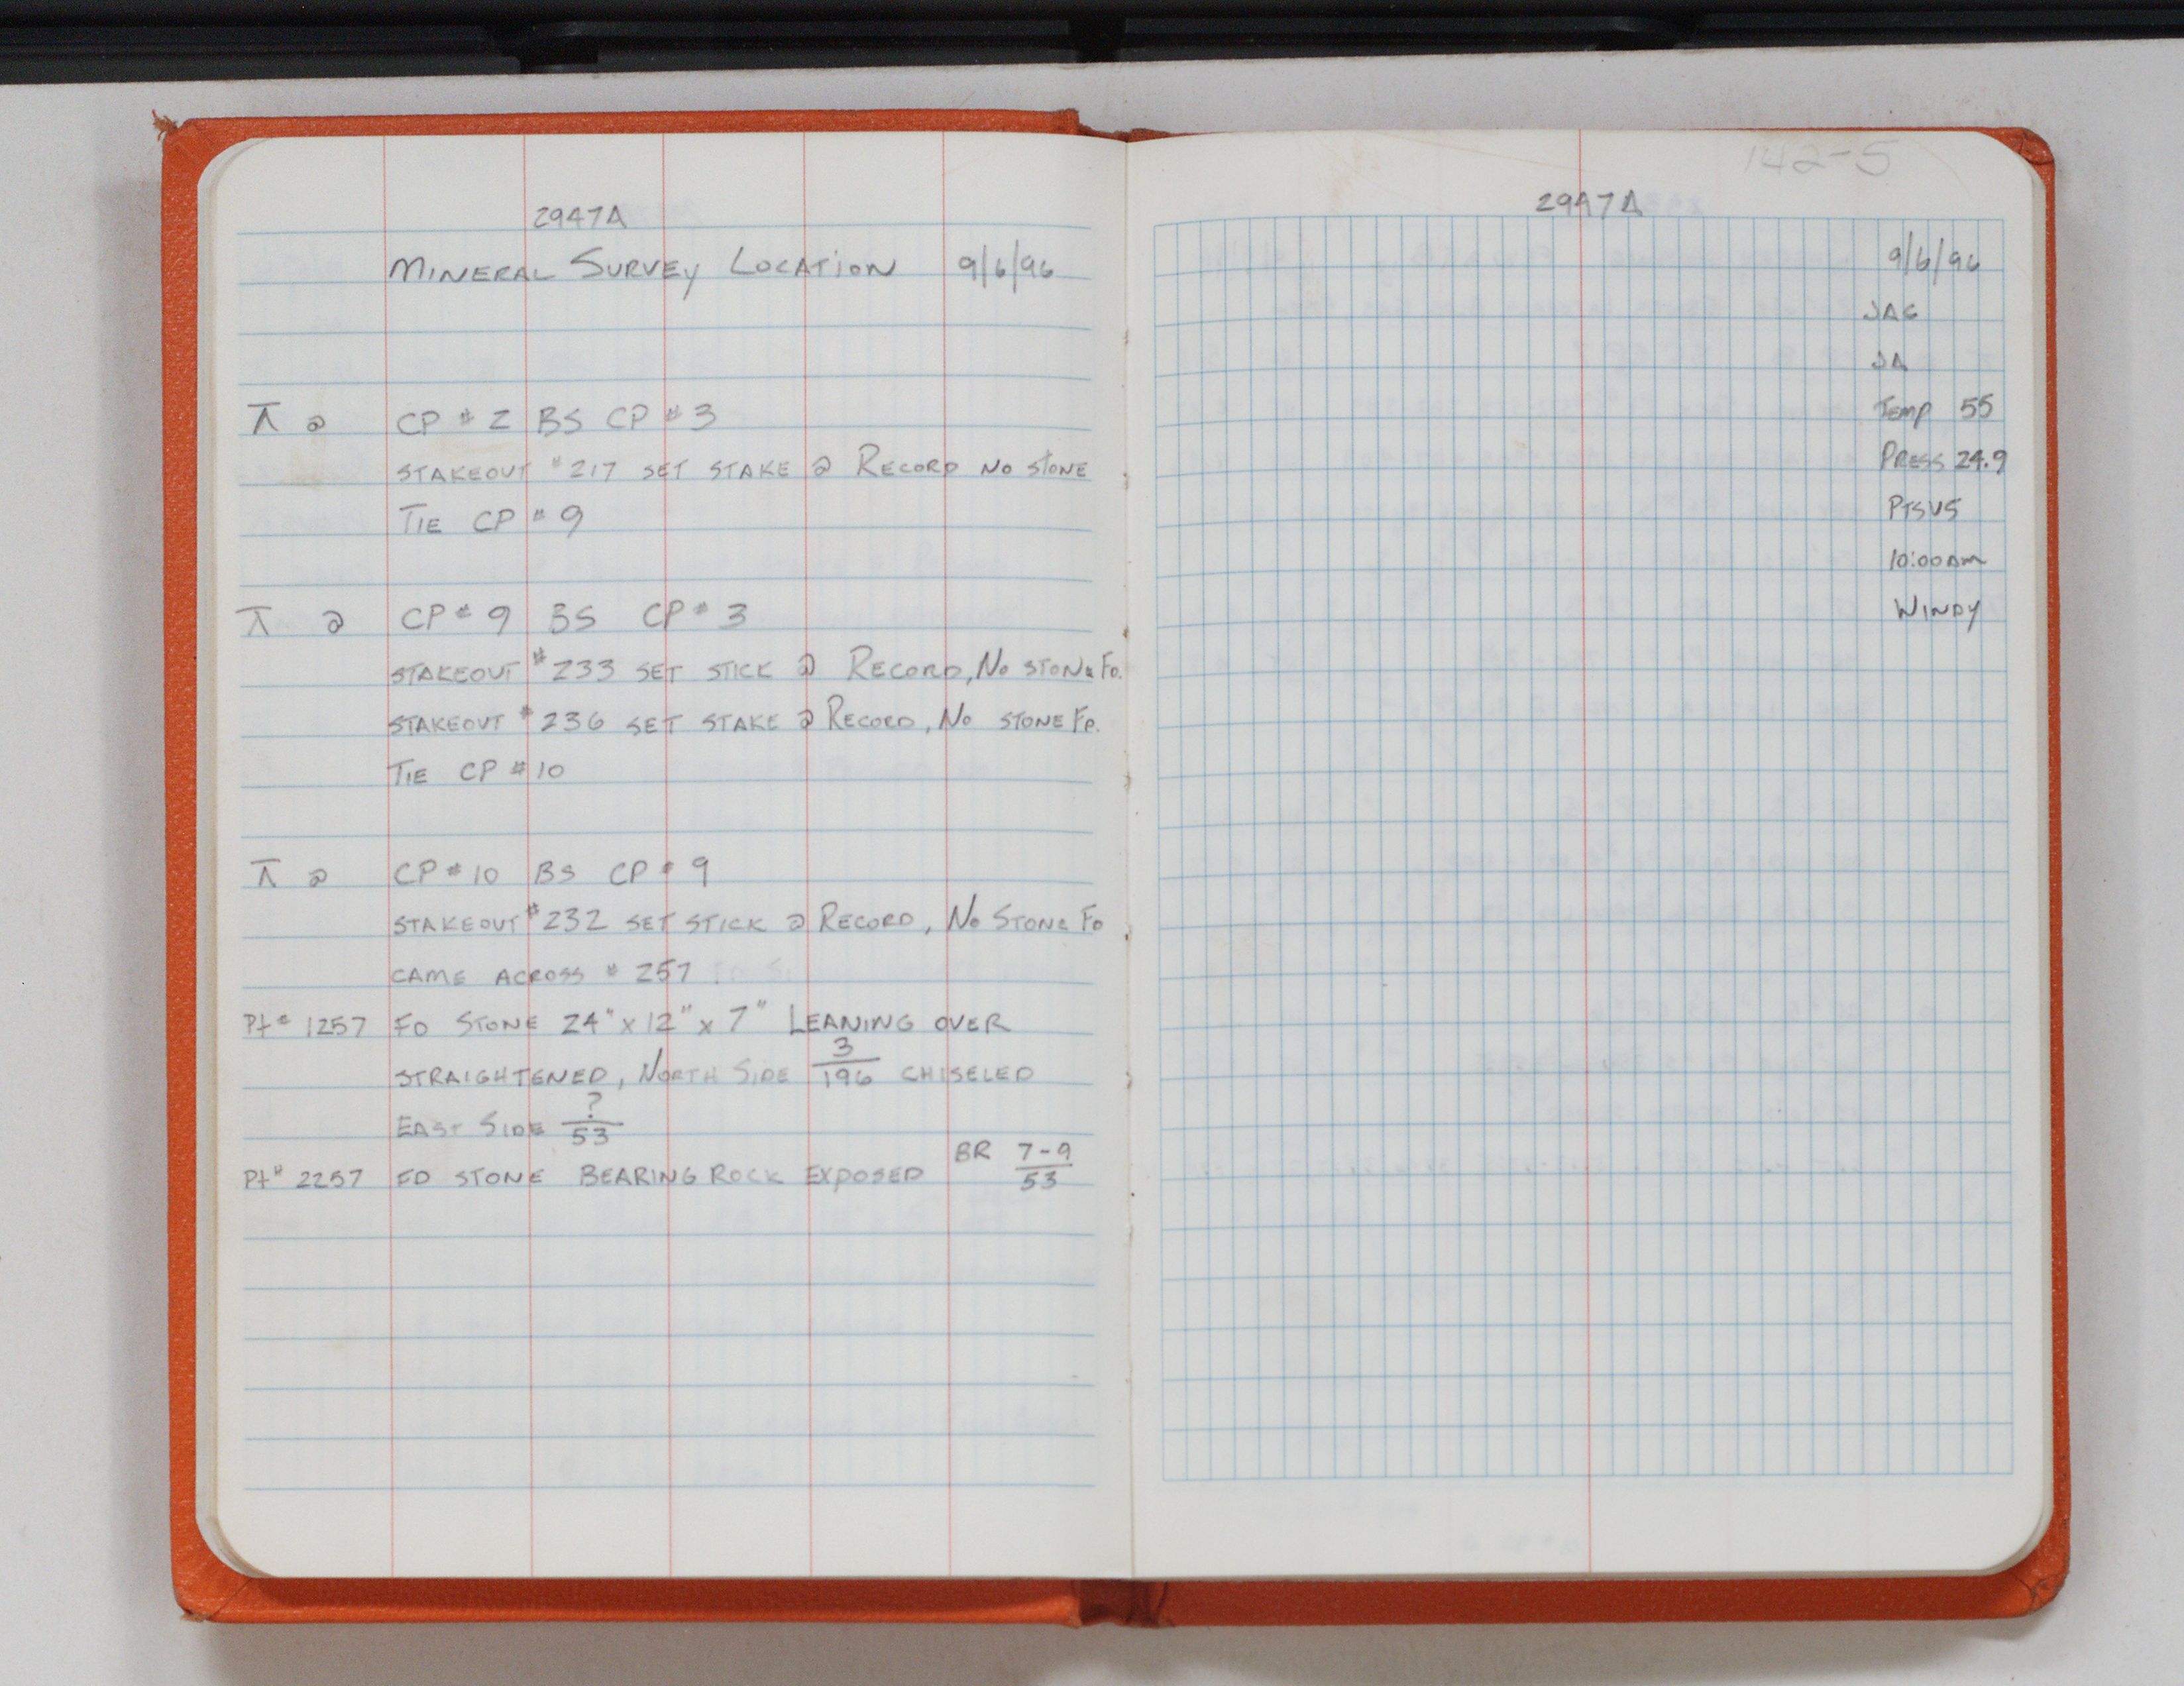 2947A
MINERAL SURVEY LOCATION 9/6/96
⊼ @ CP # 2 BS CP # 3
STAKEOUT #217 SET STAKE @ RECORD NO STONE
TIE CP # 9
⊼ @ CP # 9 BS CP # 3
STAKEOUT #233 SET STICK @ RECORD, NO STONE FD.
STAKEOUT #236 SET STAKE @ RECORD, NO STONE FD.
TIE CP # 10
⊼ @ CP # 10 BS CP # 9
STAKEOUT #232 SET STICK @ RECORD, NO STONE FD
CAME ACROSS # 257
Pt# 1257 FD STONE 24" x 12" x 7" LEANING OVER
STRAIGHTENED, NORTH SIDE 3/196 CHISELED
EAST SIDE ?/53
Pt# 2257 FD STONE BEARING ROCK EXPOSED BR 7-9/53
142-5
2947A
9/6/96
JAG
JA
TEMP 55
PRESS 24.9
PTSV5
10:00AM
WINDY